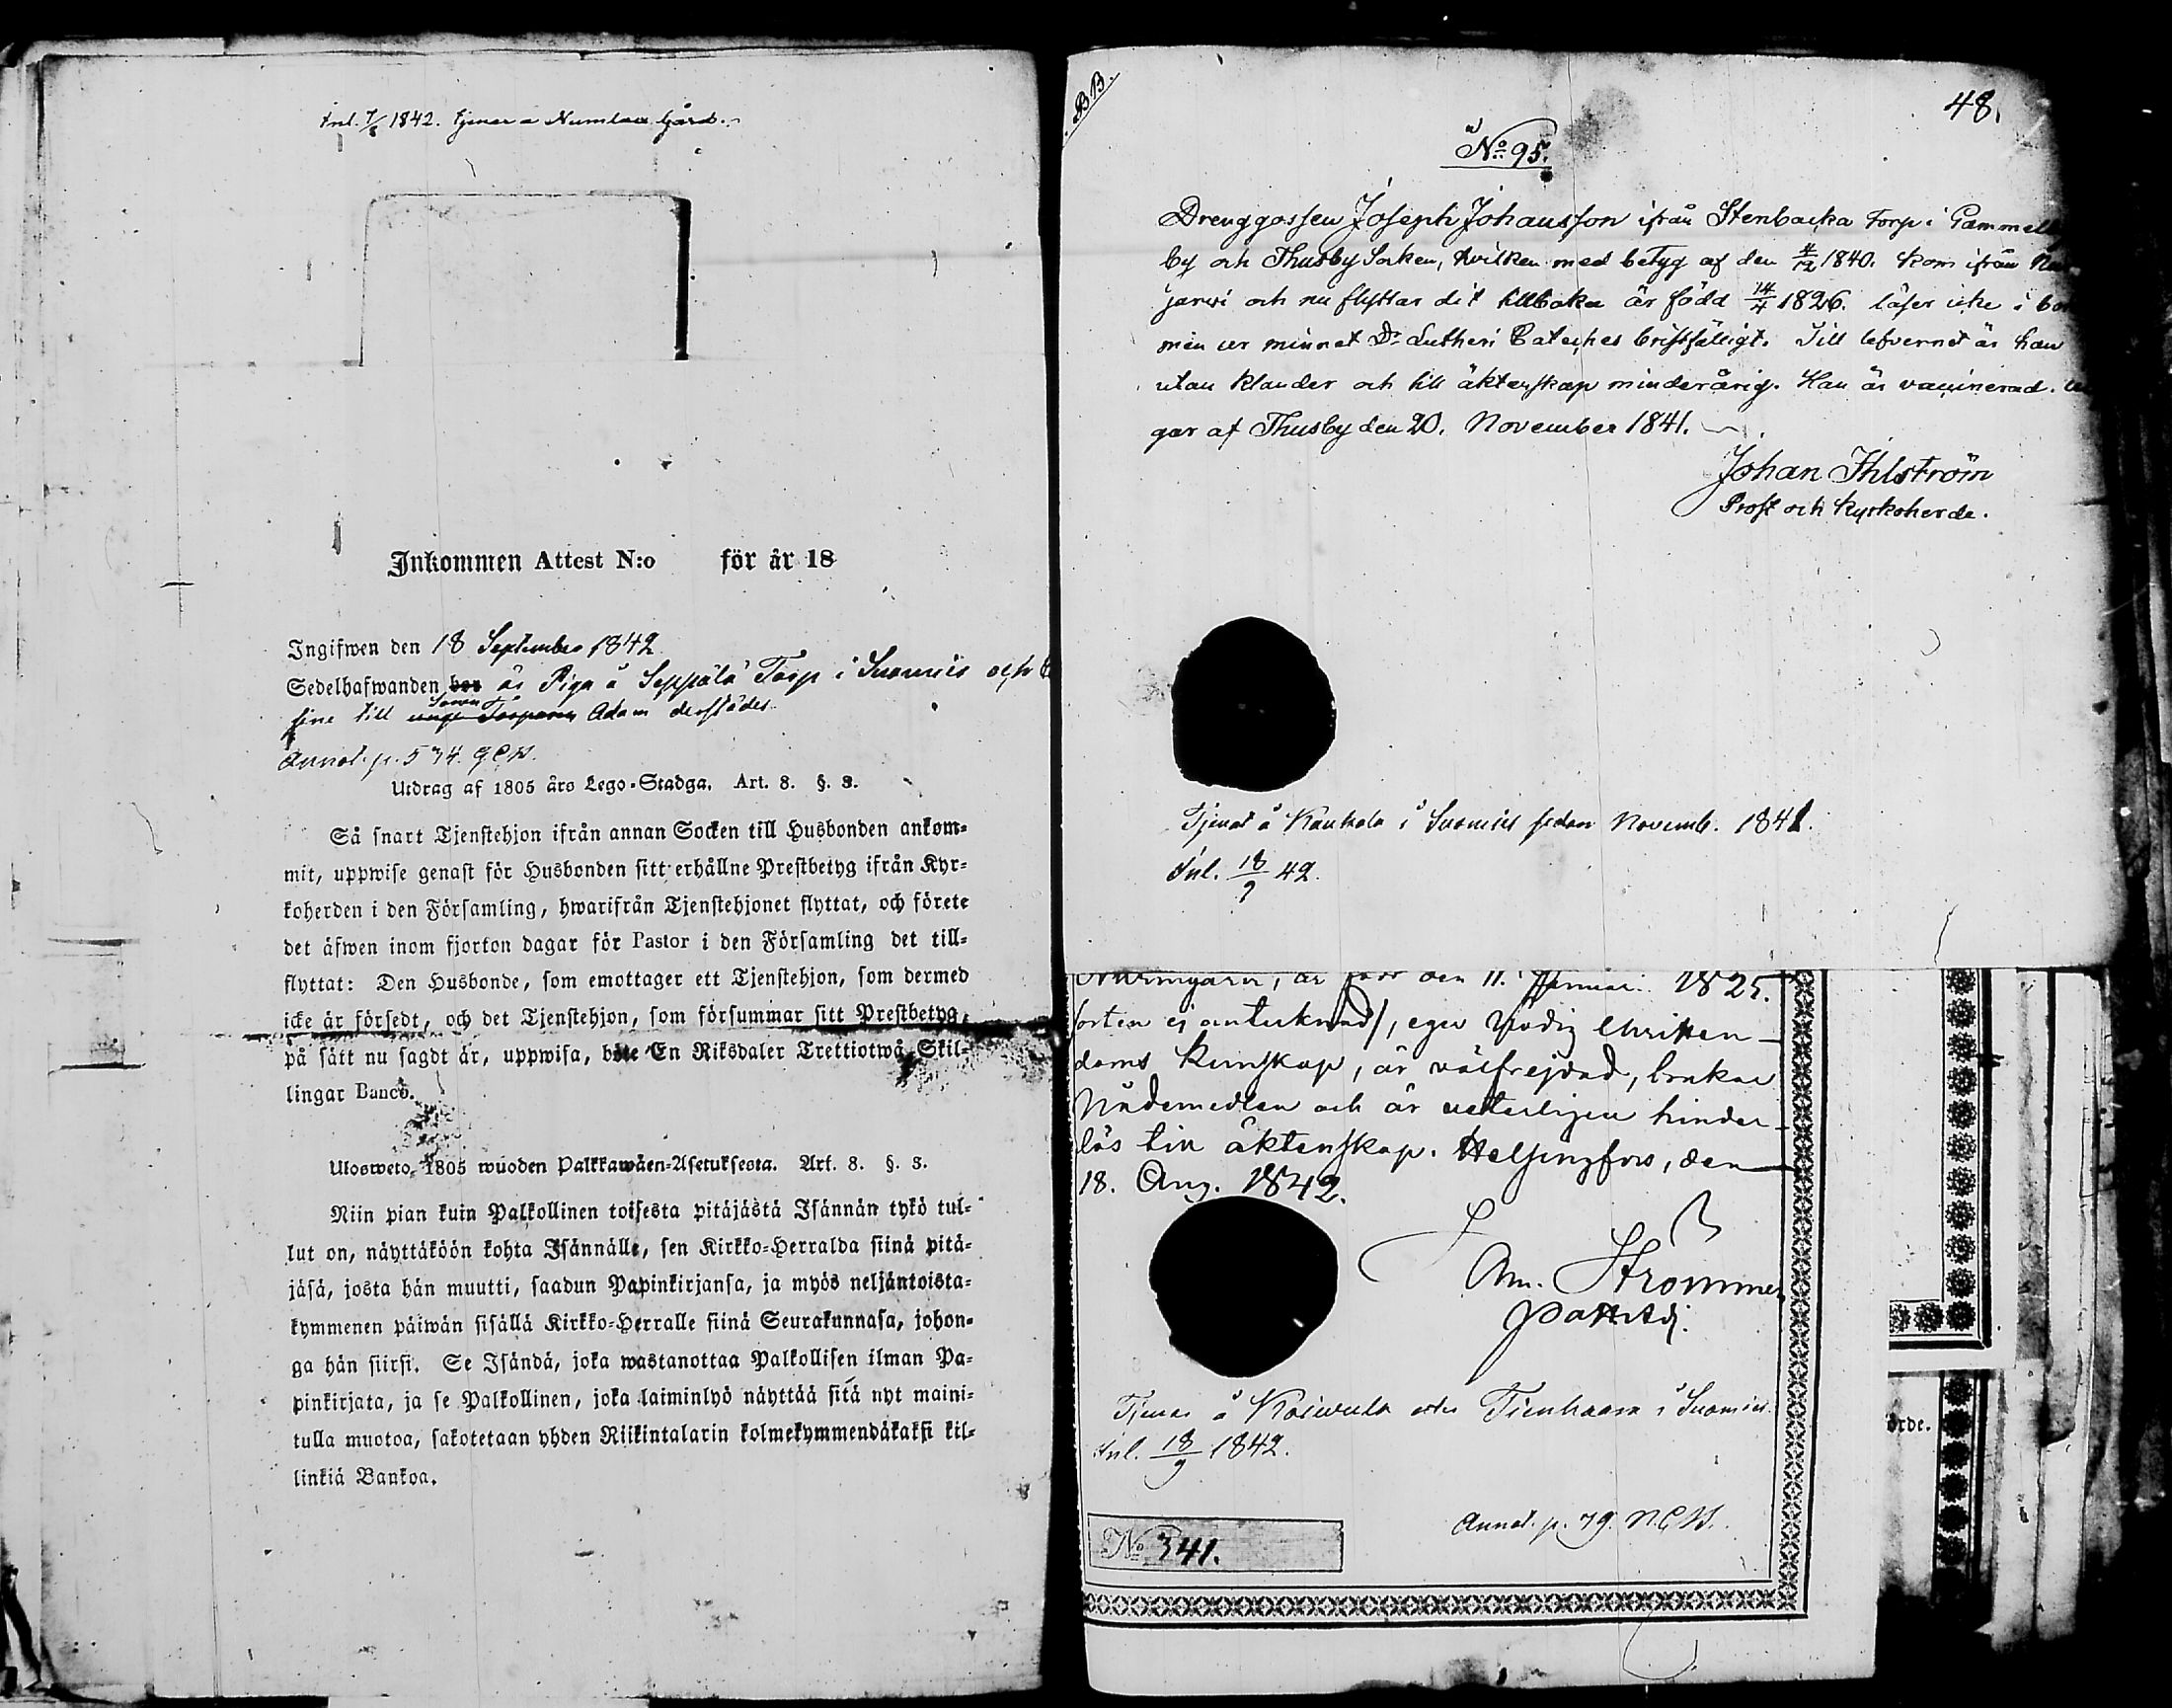 Inl. 7/8 1842. tjenar a Numlaa Gård.
Inkommen Attest N:o för år 18
Ingifwen den 18 September 1842
Sedelhafwanden bor är Piga å Seppälä Torp i Suomiis och
sine till unge Torparen Sonen Adam derstädes.
Annot. p. 534.
Utdrag af 1805 års Lego-Stadga. Art. 8. §. 3.
Så snart Tjenstehjon ifrån annan Socken till Husbonden ankom-
mit, uppwise genast för Husbonden sitt erhållne Prestbetyg ifrån Kyr-
koherden i den Församling, hwarifrån Tjenstehjonet flyttat, och förete
det äfwen inom fjorton dagar för Pastor i den Församling det till-
flyttat: Den Husbonde, som emottager ett Tjenstehjon, som dermed
icke är försedt, och det Tjenstehjon, som försummar sitt Prestbetyg,
på sätt nu sagdt är, uppwisa, böte En Riksdaler Trettiotwå Skil-
lingar Banco.
Ulosweto, 1805 wuoden Palkkawäen-Asetuksesta. Art. 8. §. 3.
Niin pian kuin Palkollinen toisesta pitäjästä Isännän tykö tul-
lut on, näyttäköön kohta Isännälle, sen Kirkko-Herralda siinä pitä-
jäsä, josta hän muutti, saadun Papinkirjansa, ja myös neljäntoista-
kymmenen päiwän sisällä Kirkko-Herralle siinä Seurakunnasa, johon-
ga hän siirsi. Se Isändä, joka wastanottaa Palkollisen ilman Pa-
pinkirjata, ja se Palkollinen, joka laiminlyö näyttää sitä nyt maini-
tulla muotoa, sakotetaan yhden Riikintalarin kolmekymmendäkaksi kil-
linkiä Bankoa.
B.B.
48.
No 95.
Drenggossen Joseph Johansson ifrån Stenbacka Torp i Gammel
by och Thusby Socken, hvilken med betyg af den 4/12 1840. kom ifrån Nu
jarwi och nu flyttar dit tillbaka är född 14/4 1826. läser icke i bo
men ur minnet Dr Lutheri Cateches bristfälligt. Till lefvernet är han
utan klander och till äktenskap minderårig. Han är vaccinerad.
gar af Thusby den 20. November 1841.
Johan Ihlström
Prost och Kyrkoherde.
Tjenat å Kaukola i Suomiis sedan Novemb. 1841.
Inl. 18/9 42.
är född den 11. Januar. 1825.
orten ej antecknad), eger nödig Christen-
doms kunskap, är välfrejdad, brukar
Nådemedlen och är veterligen hinder-
lös till äktenskap. Helsingfors, den
18. Aug. 1842.
Am. Strömmer
Past. Adj.
Tjenar å Koiwula eller Tienhaara i Suomiis.
Inl. 18/9 1842.
Annot. p. 79.
No 341.
örde.